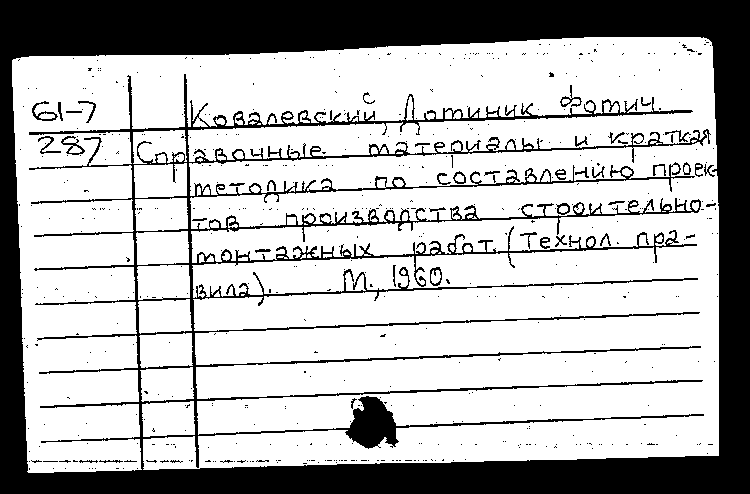 61-7
Ковалевский, Дотиник Фотич.
287
Справочные материалы и краткая
методика по составлению проек-
тов производства строительно-
монтажных работ. (Технол. пра-
вила). М., 1960.